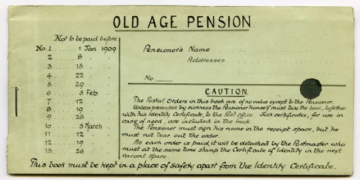 OLD AGE PENSION
Not to be paid before
No. 1 1 Jan 1909
2 8
3 15
4 22
5 29
6 5 Feb
7 12
8 19
9 26
10 5 March
11 12
12 19
13 26
Pensioner's Name
Address
No.
CAUTION.
The Postal Orders in this book are of no value except to the Pensioner.
Unless prevented by sickness the Pensioner himself must take the book, together
with his Identity Certificate, to the Post Office. Sick certificates, for use in
case of need, are included in the book.
The Pensioner must sign his name in the receipt space, but he
must not tear out the order.
As each order is paid, it will be detached by the Postmaster who
must at the same time stamp the Certificate of Identity in the next
vacant space.
This book must be kept in a place of safety apart from the Identity Certificate.